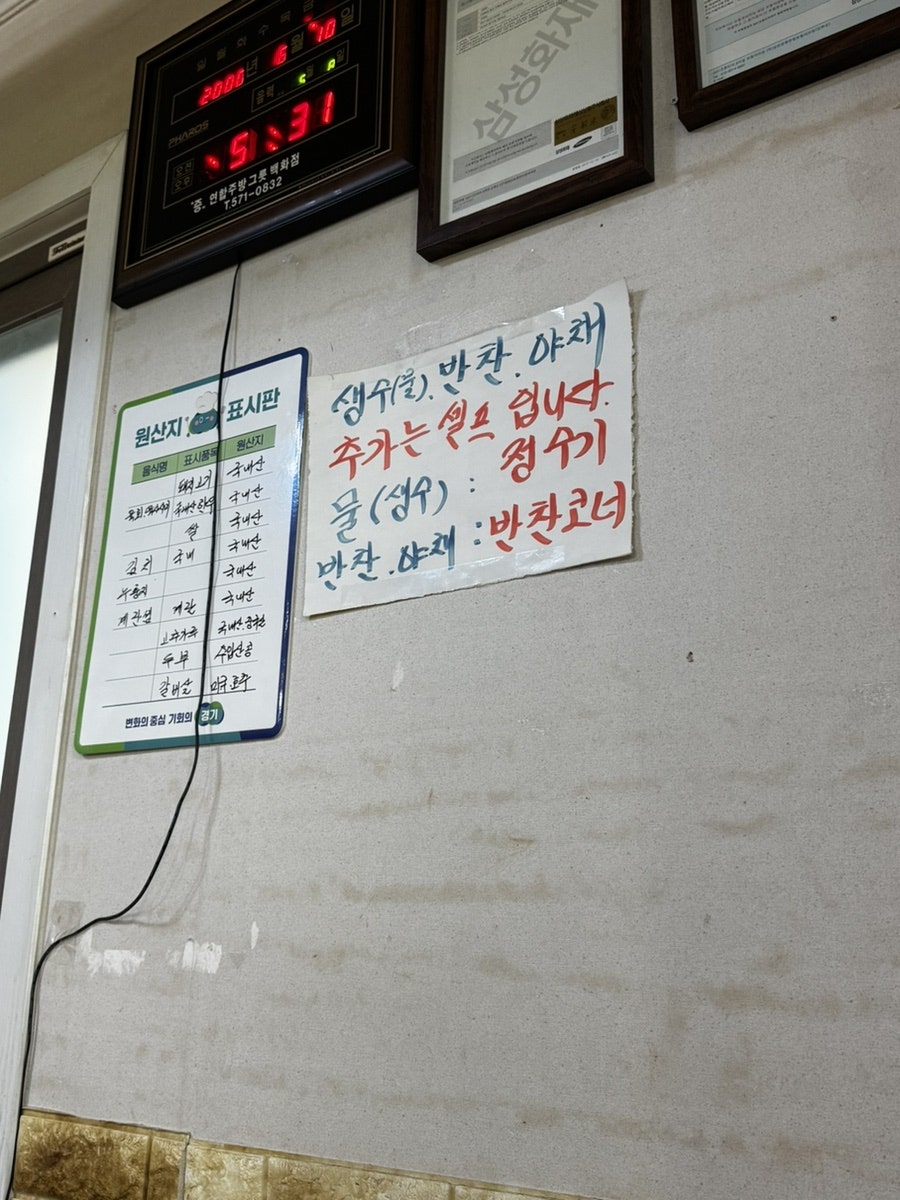 일 월 화 수 목 금
2006 년 16 월 70 일
음력 월 일
PHAROS
오전
오후
5 : 31
"증" 연합주방그릇백화점
T.571-0832
삼성화재
원산지 표시판
음식명 표시품목 원산지
돼지고기 국내산
국내산한우 국내산
쌀 국내산
김치 국내 국내산
누룽지 국내산
계란찜 계란 국내산
고추가루 국내산.중국산
두부 수입산콩
갈비살 미국.호주
변화의 중심 기회의 경기
생수(물). 반찬. 야채
추가는 셀프 입니다.
물(생수) : 정수기
반찬.야채 : 반찬코너